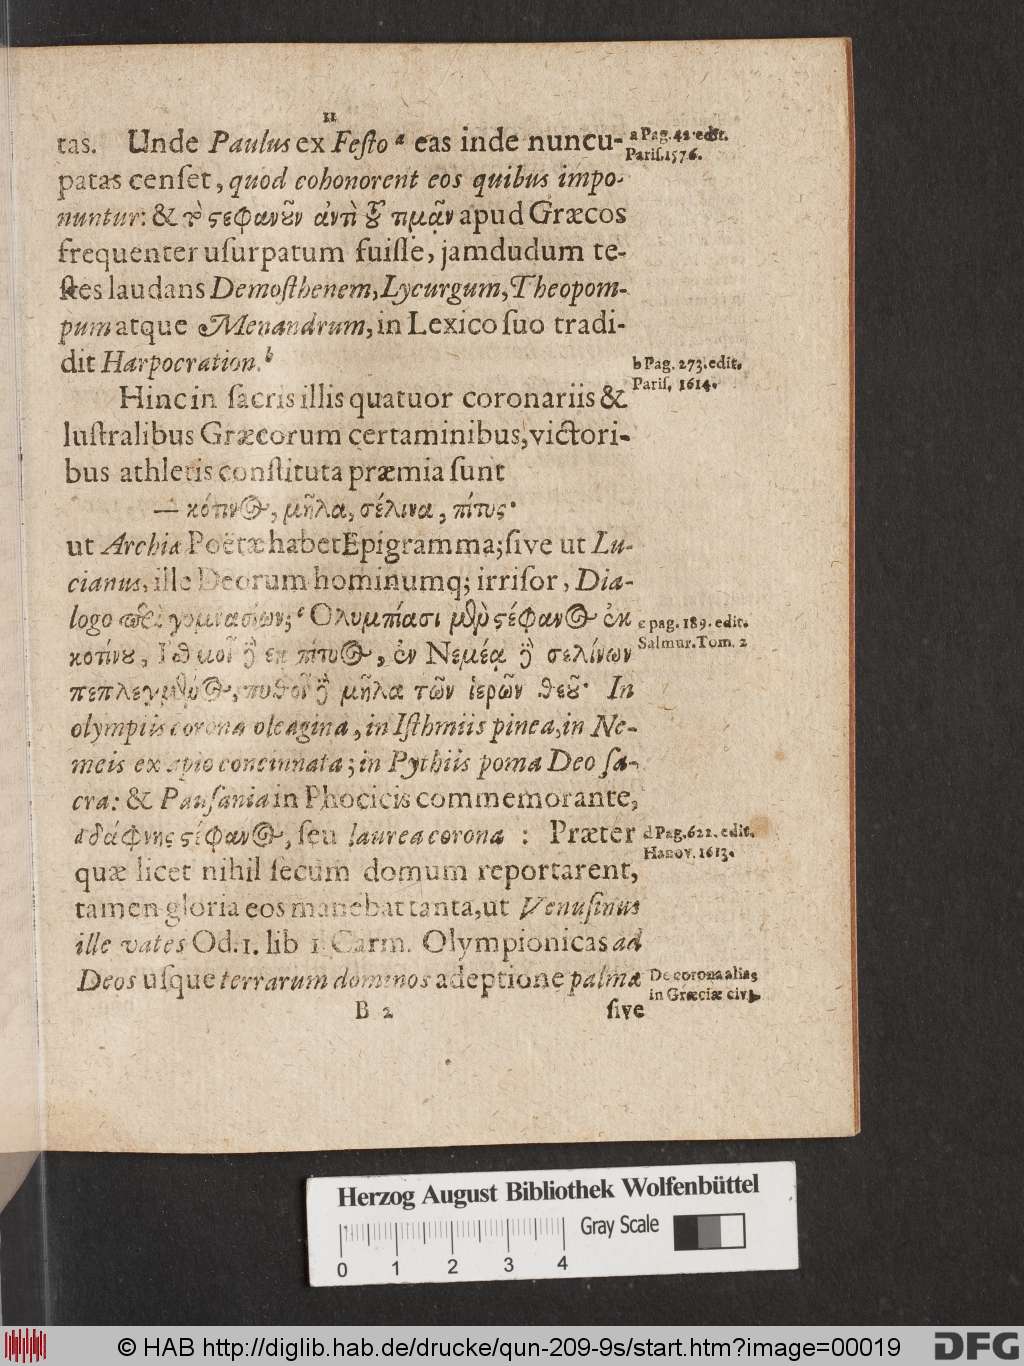 11
tas. Unde Paulus ex Festo a eas inde nuncu-
patas censet, quod cohonorent eos quibus impo-
nuntur: & τὸ ςεφανοῦν ἀντὶ τοῦ τιμᾷν apud Græcos
frequenter usurpatum fuisse, jamdudum te-
stes laudans Demosthenem, Lycurgum, Theopom-
pum atque Menandrum, in Lexico suo tradi-
dit Harpocration. b
Hinc in sacris illis quatuor coronariis &
lustralibus Græcorum certaminibus, victori-
bus athletis constituta præmia sunt
— κότινος, μῆλα, σέλινα, πίτυς·
ut Archia Poëtæ habet Epigramma; sive ut Lu-
cianus, ille Deorum hominumq; irrisor, Dia-
logo περὶ γυμνασίων; c Ολυμπίασι μὲν ςέφανος ἐκ
κοτίνου, Ισθμοῖ δὲ ἐκ πίτυος, ἐν Νεμέᾳ δὲ σελίνων
πεπλεγμένος, πυθοῖ δὲ μῆλα τῶν ἱερῶν θεοῦ· In
olympiis corona oleagina, in Isthmiis pinea, in Ne-
meis ex apio concinnata; in Pythiis poma Deo sa-
cra: & Pausania in Phocicis commemorante,
d δάφνης ςέφανος, seu laurea corona : Præter
quæ licet nihil secum domum reportarent,
tamen gloria eos manebat tanta, ut Venusinus
ille vates Od. 1. lib 1. Carm. Olympionicas ad
Deos usque terrarum dominos adeptione palmæ
B 2
sive
a Pag. 42. edit.
Paris. 1576.
b Pag. 273. edit.
Paris. 1614.
c pag. 189. edit.
Salmur. Tom. 2
d Pag. 622. edit.
Hanov. 1613.
De corona alias
in Græciæ civ
Herzog August Bibliothek Wolfenbüttel
Gray Scale
0 1 2 3 4
© HAB http://diglib.hab.de/drucke/qun-209-9s/start.htm?image=00019
DFG